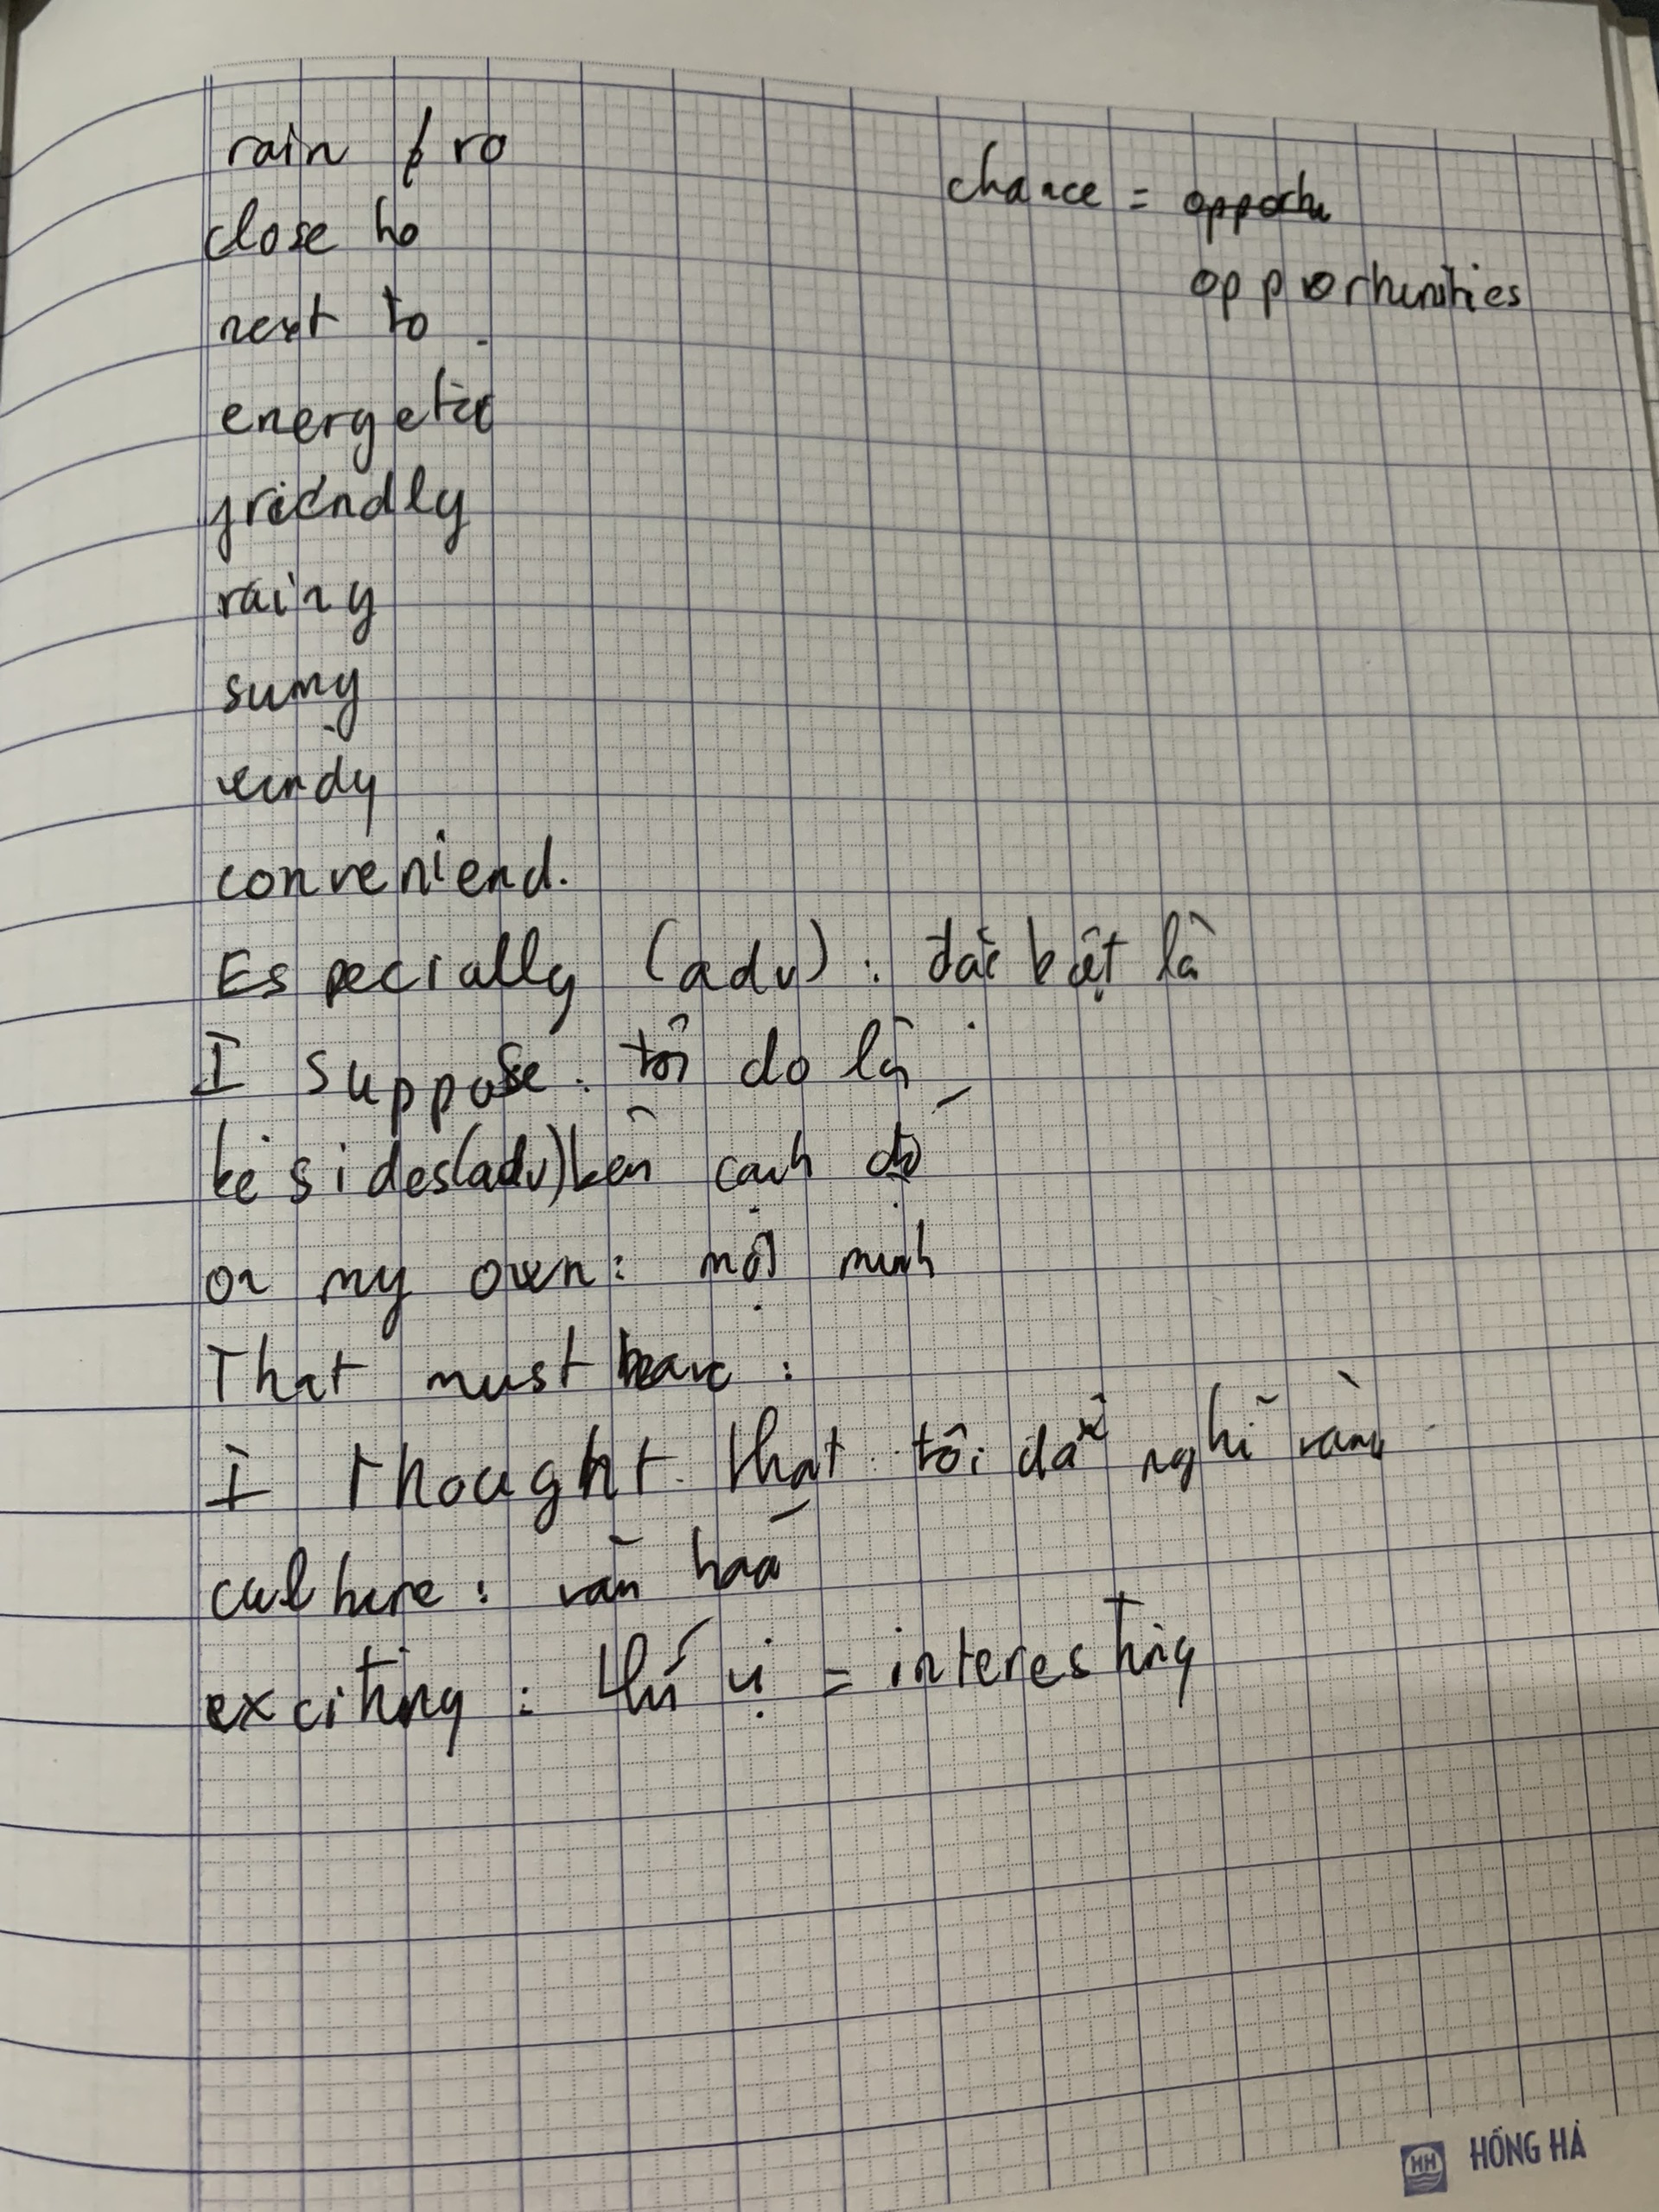 rain f ro
close to
next to
energetic
friendly
rainy
sunny
windy
conveniend.
Especially (adv) : đặc biệt là
I suppose : tôi do là
besides (adv) bên cạnh đó
on my own : một mình
That must have :
I thought that tôi đã nghĩ rằng
culture : văn hoá
exciting : thú vị = interesting
chance = opportu
opportunities
HỒNG HÀ